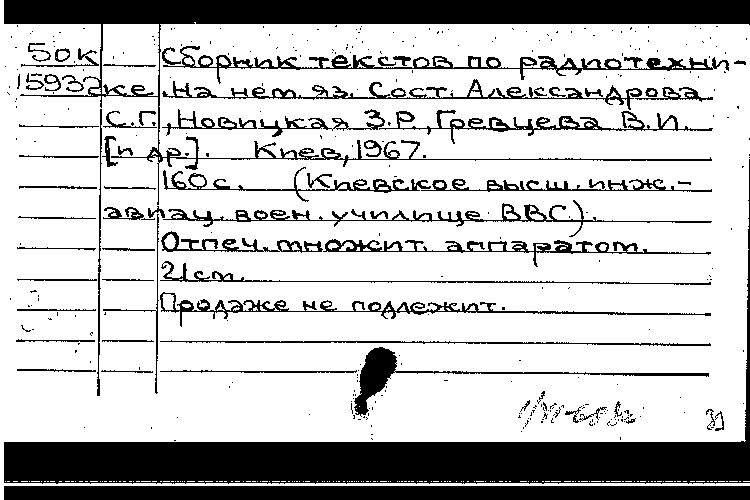 50К Сборник текстов по радиотехни-
15932 ке на нем. яз. Сост. Александрова
С.Г., Новицкая З.Р., Гревцева В.И.
[и др.]. Киев, 1967.
160 с. (Киевское высш. инж.-
авиац. воен. училище ВВС).
Отпеч. множит. аппаратом.
21 см.
Продаже не подлежит.